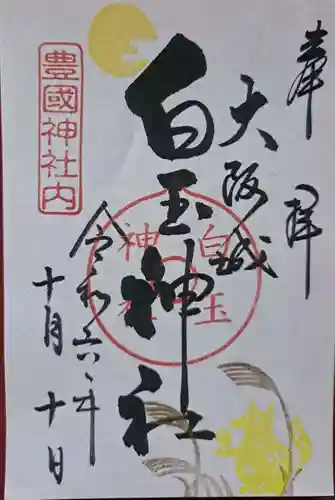 奉拝
大阪城
白玉神社
白玉神社
豊國神社内
令和六年
十月十日